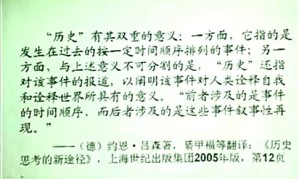 “历史”有其双重的意义：一方面，它指的是
发生在过去的按一定时间顺序排列的事件；另一
方面，与上述意义不可分割的是，“历史”还指
对该事件的报道，以阐明该事件对人类诠释自我
和诠释世界所具有的意义。“前者涉及的是事件
的时间顺序，而后者涉及的是这些事件叙事性再
现。”
——（德）约恩·吕森著，綦甲福等翻译：《历史
思考的新途径》，上海世纪出版集团2005年版，第12页